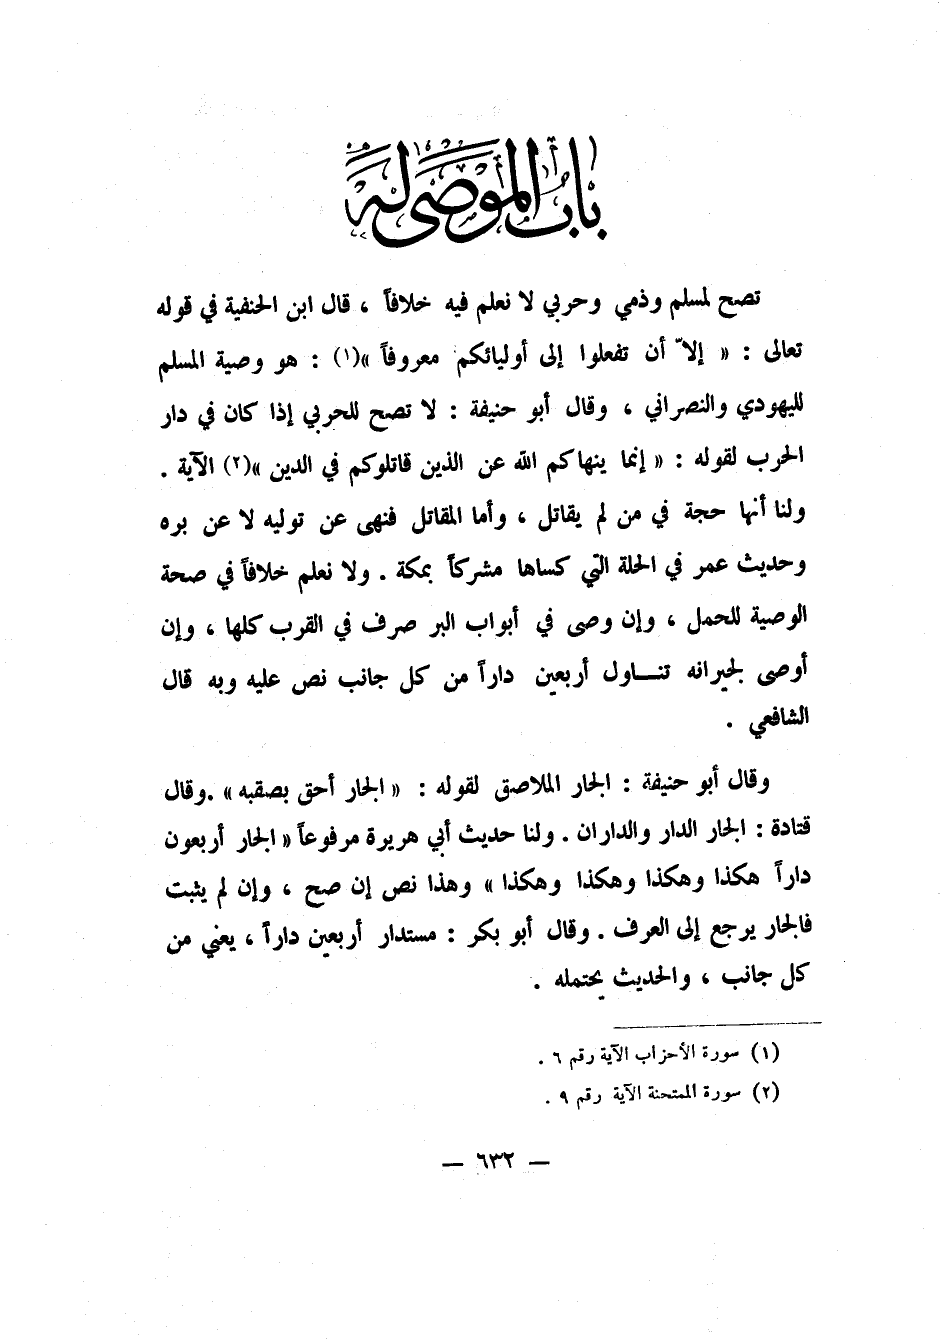 باب الموصى له
تصح لمسلم وذمي وحربي لا نعلم فيه خلافاً ، قال ابن الحنفية في قوله
تعالى : « إلاّ أن تفعلوا إلى أوليائكم معروفاً »(١) : هو وصية المسلم
لليهودي والنصراني ، وقال أبو حنيفة : لا تصح للحربي إذا كان في دار
الحرب لقوله : « إنما ينهاكم الله عن الذين قاتلوكم في الدين »(٢) الآية .
ولنا أنها حجة في من لم يقاتل ، وأما المقاتل فنهى عن توليه لا عن بره
وحديث عمر في الحلة التي كساها مشركاً بمكة . ولا نعلم خلافاً في صحة
الوصية للحمل ، وإن وصى في أبواب البر صرف في القرب كلها ، وإن
أوصى لجيرانه تنـــاول أربعين داراً من كل جانب نص عليه وبه قال
الشافعي .
وقال أبو حنيفة : الجار الملاصق لقوله : « الجار أحق بصقبه » .وقال
قتادة : الجار الدار والداران . ولنا حديث أبي هريرة مرفوعاً « الجار أربعون
داراً هكذا وهكذا وهكذا وهكذا » وهذا نص إن صح ، وإن لم يثبت
فالجار يرجع إلى العرف . وقال أبو بكر : مستدار أربعين داراً ، يعني من
كل جانب ، والحديث يحتمله .
(١) سورة الأحزاب الآية رقم ٦ .
(٢) سورة الممتحنة الآية رقم ٩ .
— ٦٣٢ —